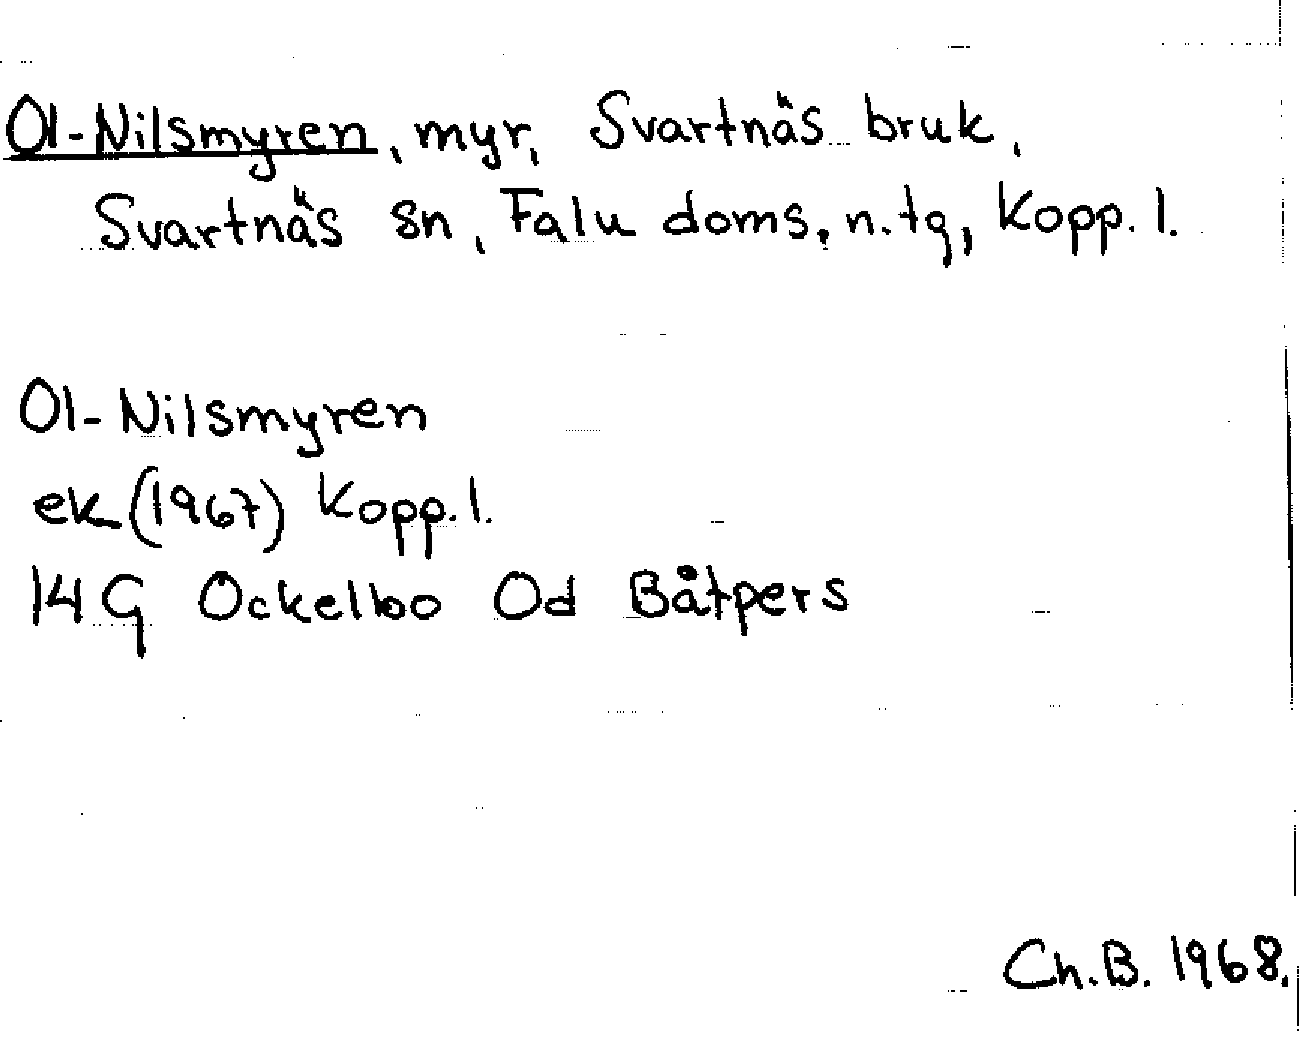 Ol-Nilsmyren, myr, Svartnäs bruk,
Svartnäs sn, Falu doms. n.tg, Kopp. l.
Ol-Nilsmyren
ek (1967) Kopp. l.
14 G Ockelbo Od Båtpers
Ch.B. 1968.